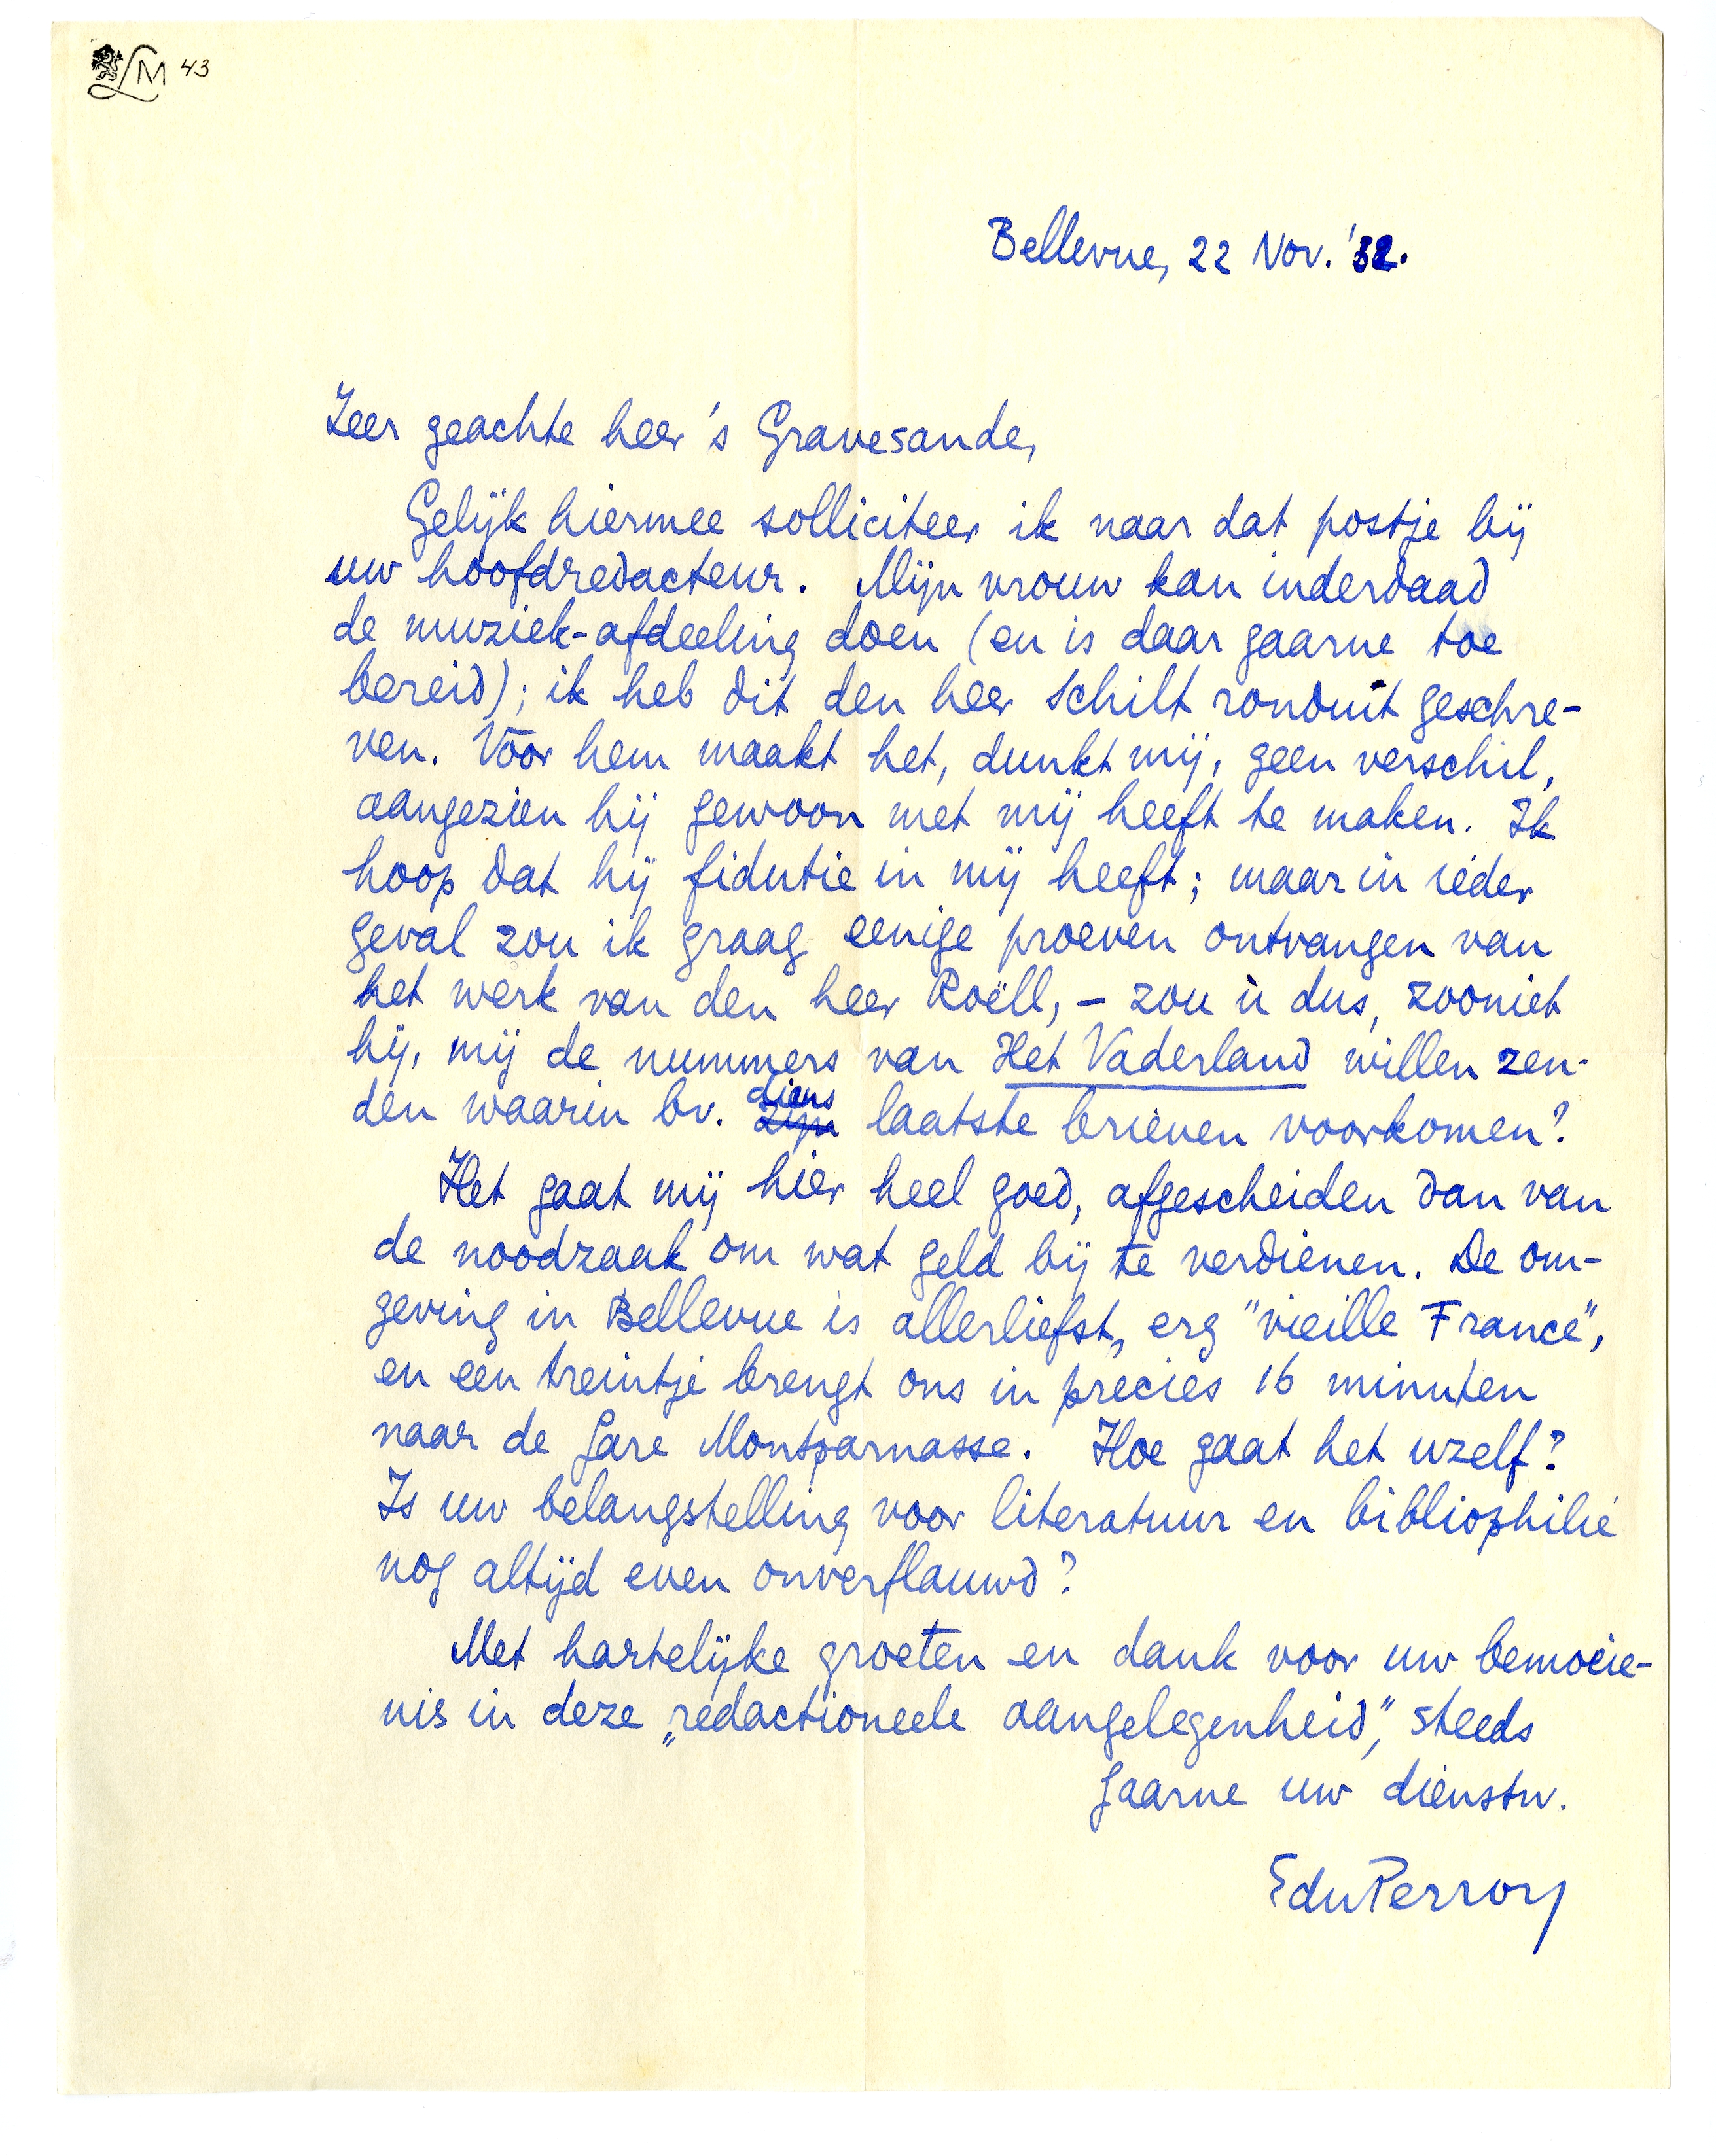 LM 43
Bellevue, 22 Nov. '32.
Zeer geachte heer 's Gravesande,
Gelijk hiermee solliciteer ik naar dat postje bij
uw hoofdredacteur. Mijn vrouw kan inderdaad
de muziek-afdeeling doen (en is daar gaarne toe
bereid); ik heb dit den heer Schilt ronduit geschre-
ven. Voor hem maakt het, dunkt mij, geen verschil,
aangezien hij gewoon met mij heeft te maken. Ik
hoop dat hij fidutie in mij heeft; maar in ieder
geval zou ik graag eenige proeven ontvangen van
het werk van den heer Roëll, – zou ù dus, zooniet
hij, mij de nummers van Het Vaderland willen zen-
den waarin bv. diens laatste brieven voorkomen?
Het gaat mij hier heel goed, afgescheiden dan van
de noodzaak om wat geld bij te verdienen. De om-
geving in Bellevue is allerliefst, erg "vieille France",
en een treintje brengt ons in precies 16 minuten
naar de Gare Montparnasse. Hoe gaat het uzelf?
Is uw belangstelling voor literatuur en bibliophilie
nog altijd even onverflauwd?
Met hartelijke groeten en dank voor uw bemoeie-
nis in deze „redactioneele aangelegenheid", steeds
gaarne uw dienstw.
EduPerron